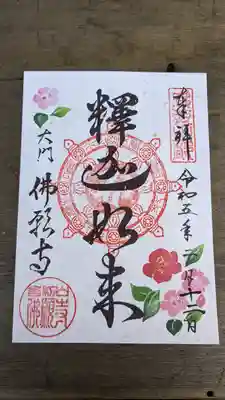 奉拝
令和五年五月十二日
釋迦如来
大門 佛願寺